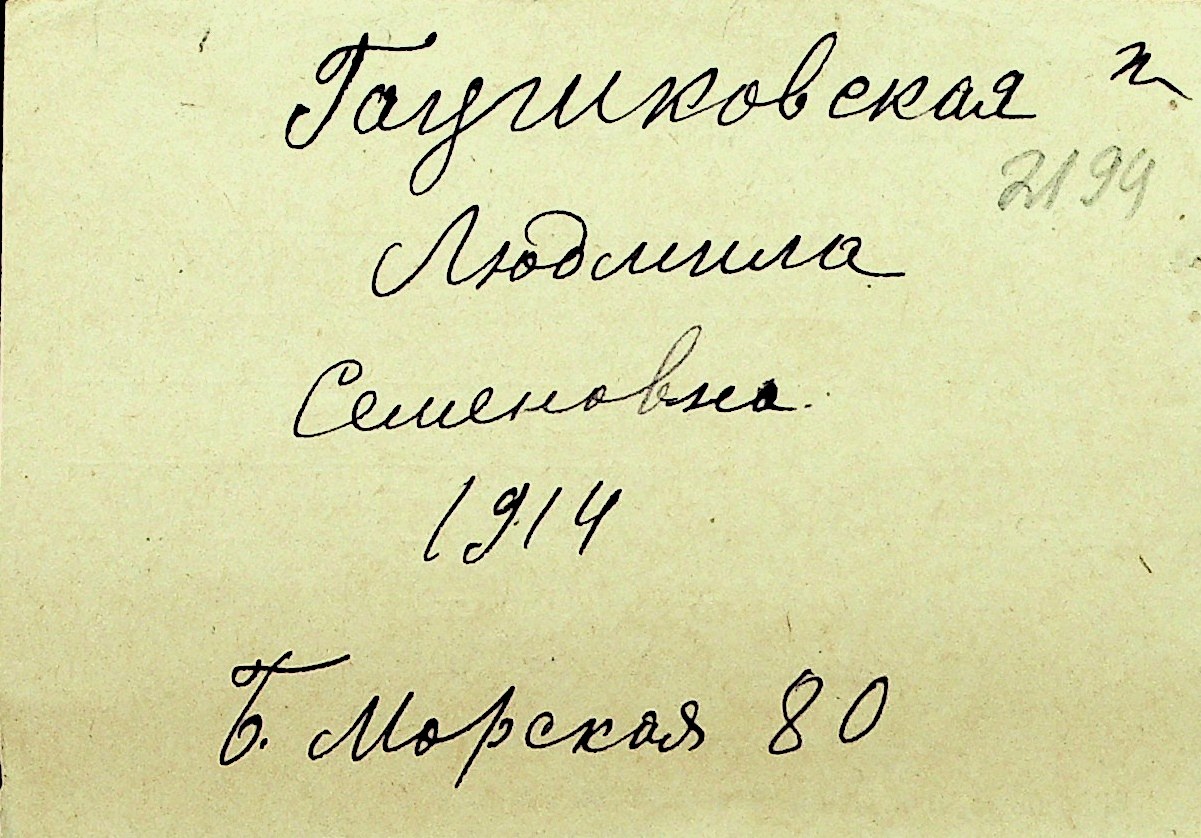 Гаушковская п
2194
Людмила
Семеновна
1914
Б. Морская 80